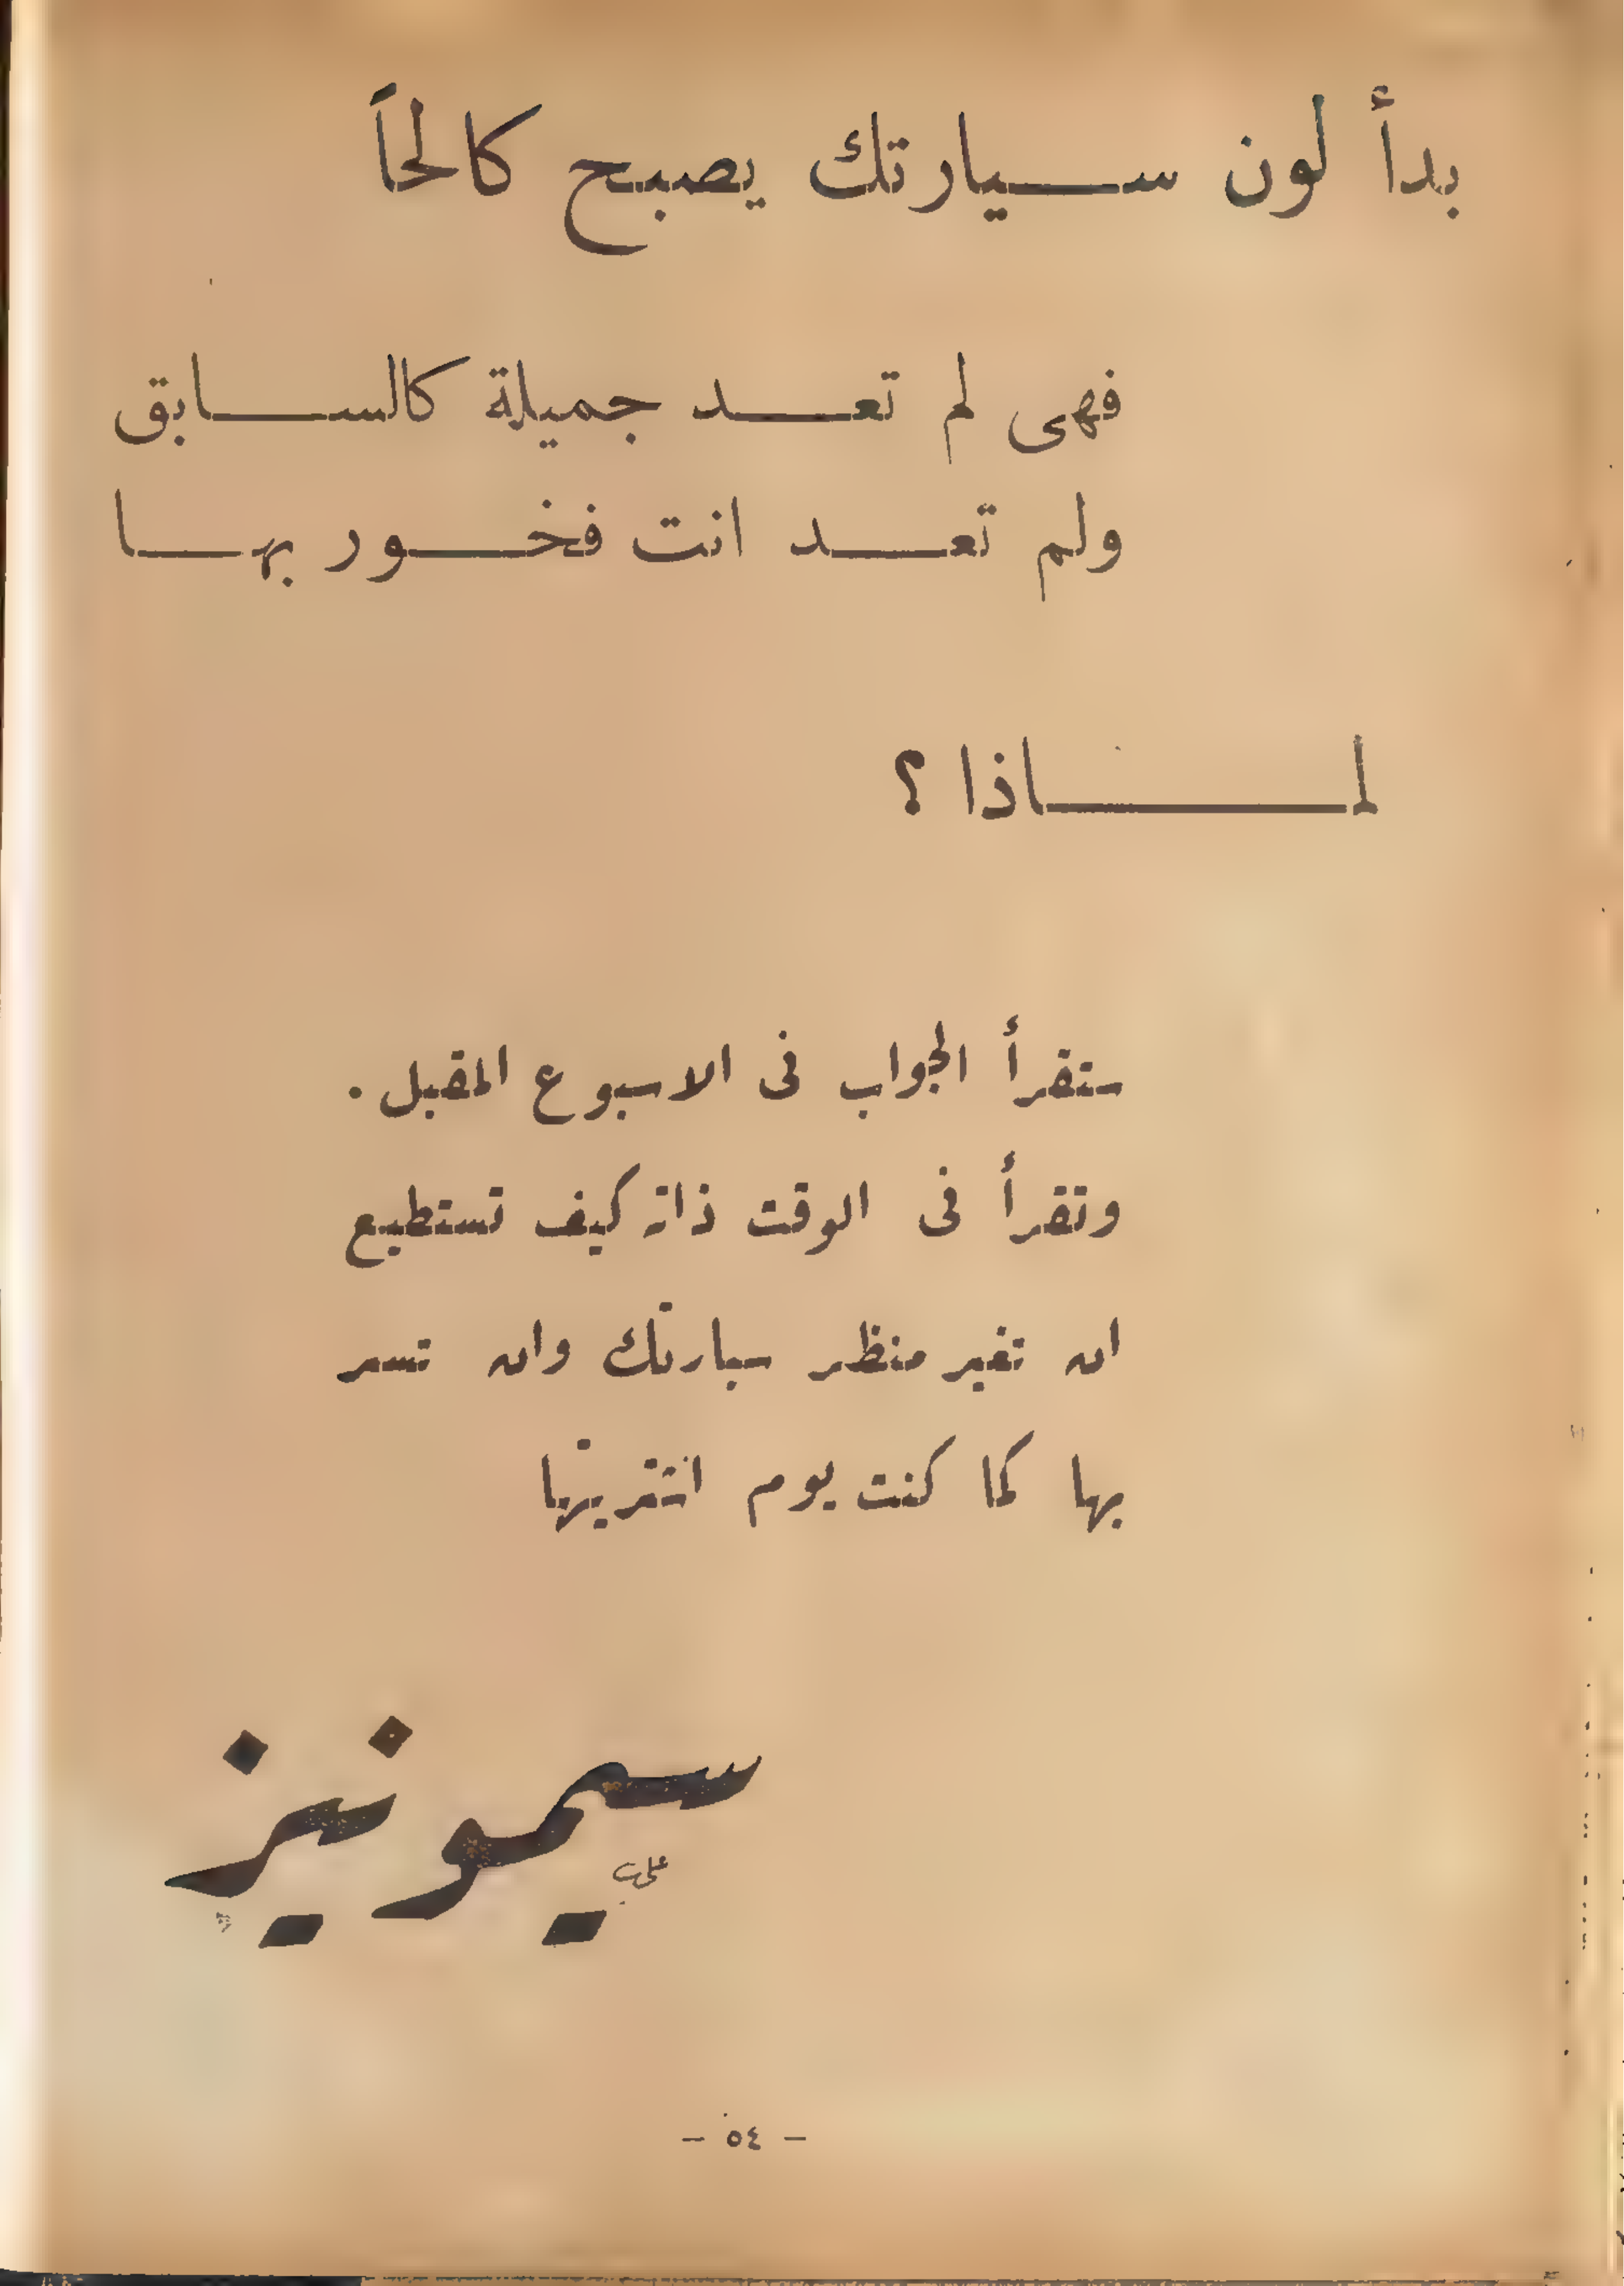 بدأ لون سيارتك يصبح كالحاً
فهى لم تعد جميلة كالسابق
ولم تعد انت فخور بها
لماذا ؟
ستقرأ الجواب فى الاسبوع المقبل .
وتقرأ فى الوقت ذاته كيف تستطيع
ان تغير منظر سيارتك وان تسر
بها كما كنت يوم اشتريتها
سيمونيز
- ٥٤ -